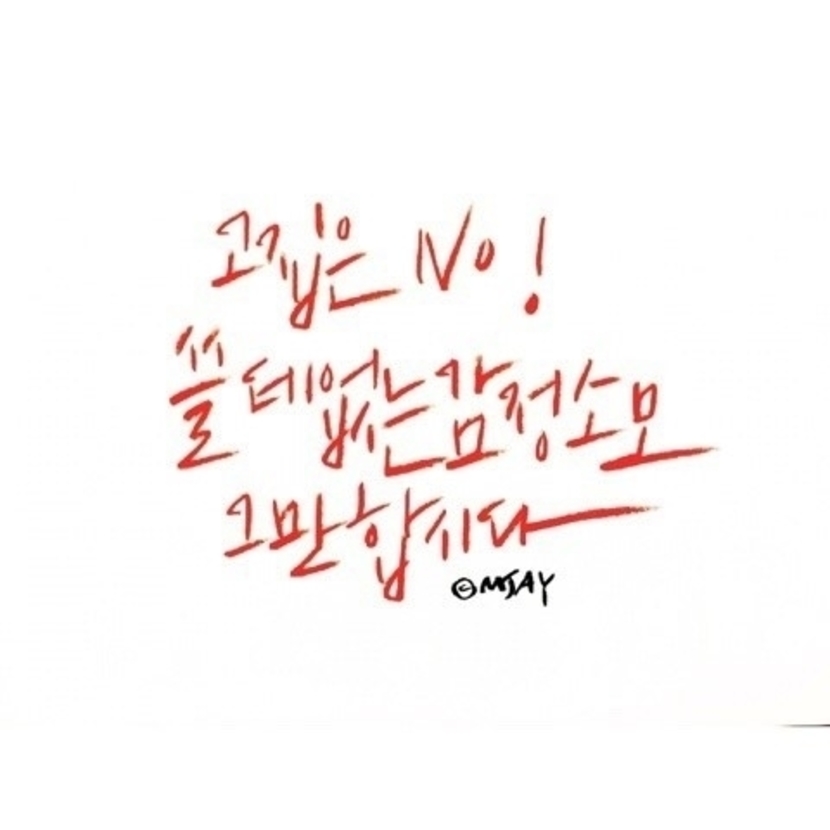 고집은 NO!
쓸데없는 감정소모
그만합시다
©MJAY